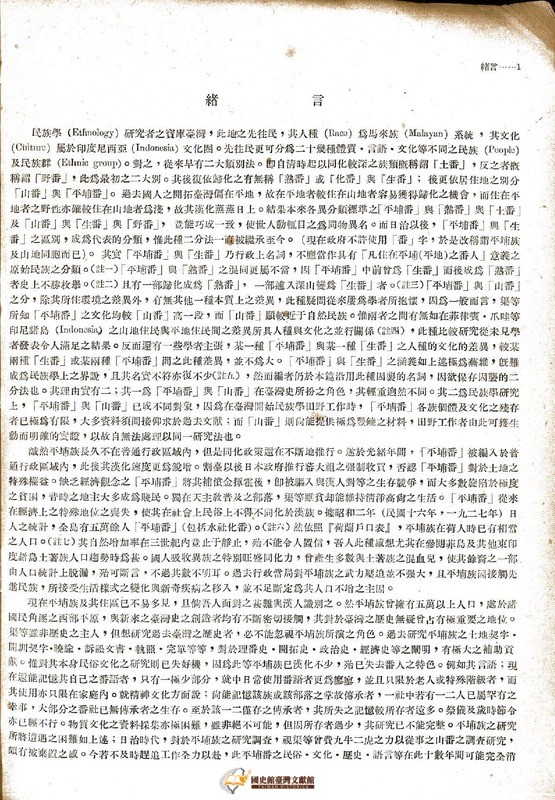 緒言……1
緒言
民族學 (Ethnology) 研究者之寶庫臺灣，此地之先住民，其人種 (Race) 爲馬來族 (Malayan) 系統，其文化
(Culture) 屬於印度尼西亞 (Indonesia) 文化圈。先住民更可分爲二十幾種體質、言語、文化等不同之民族 (People)
及民族群 (Ethnic group)。對之，從來早有二大類別法。卽自淸時起以同化較深之族類槪稱謂「土番」，反之者槪
稱謂「野番」，此爲最初之二大別。其後復依歸化之有無稱「熟番」或「化番」與「生番」；後更依居住地之別分
「山番」與「平埔番」。過去國人之開拓臺灣偏在平地，故在平地者較住在山地者容易獲得歸化之機會，而住在平
地者之野性亦確較住在山地者爲淺，故其漢化蒸蒸日上。結果本來各異分類標準之「平埔番」與「熟番」與「土番」
及「山番」與「生番」與「野番」，竟能巧成一致，使世人動輒目之爲同物異名。而日治以後，「平埔番」與「生番」
之區別，成爲代表的分類，惟此種二分法一直被繼承至今。（現在政府不許使用「番」字，於是改稱謂平埔族
及山地同胞而已）。其實「平埔番」與「山番」乃行政上名詞，不應當作具有「凡住在平埔(平地)之番人」意義之
原始民族之分類。(註一)「平埔番」與「熟番」之混同更屬不當，因「平埔番」中前曾爲「生番」而後成爲「熟番」
者史上不勝枚擧。(註二) 且有一部歸化成爲「熟番」，一部遁入深山變爲「生番」者。(註三)「平埔番」與「山番」
之分，除其所住環境之差異外，有無其他一種本質上之差異，此種疑問從來屢爲學者所抱懷，因爲一般而言，渠等
所知「平埔番」之文化均較「山番」高一段，而「山番」顯較近于自然民族。惟兩者之間有無如在菲律賓、爪哇等
印尼諸島 (Indonesia) 之山地住民與平地住民間之差異所具人種與文化之並行關係 (註四)，此種比較研究從未見學
者發表令人滿足之結果。反而還有一些學者主張，某一種「平埔番」與某一種「生番」之人種的文化的差異，較某
兩種「生番」或某兩種「平埔番」間之此種差異，並不爲大。「平埔番」與「生番」之涵義如上述極爲蕪雜，旣難
成爲民族學上之界說，且其名實不符亦復不少(註五)，然而編者仍於本篇沿用此種因襲的名詞，因欲保存因襲的二
分法也。其理由實有二：其一爲「平埔番」與「山番」在臺灣史所扮之角色，其輕重迥然不同。其二爲民族學研究
上，「平埔番」與「山番」已成不同對象，因爲在臺灣開始民族學田野工作時，「平埔番」各族個體及文化之殘存
者已極爲有限，大多資料須間接仰求於過去文獻；而「山番」則尙能提供極爲豐饒之材料，田野工作者由此可獲生
動而明確的實證，以故自無法處理以同一研究法也。
誠然平埔族長久不在普通行政區域內，但是同化政策還在不斷地推行。遂於光緒年間，「平埔番」被編入於普
通行政區域內，此後其漢化速度更爲銳增。割臺以後日本政府推行審大祖之强制收買，否認「平埔番」對於土地之
特殊權益。缺乏經濟觀念之「平埔番」將其補償金揮霍後，卽被編入與漢人對等之生存競爭，而大多數陷於極度
之貧困，昔時之地主大多成爲賤民。獨在天主敎普及之部落，渠等雖貧却能維持淸淨高尙之生活。「平埔番」從來
在經濟上之特殊地位之喪失，使其在社會上民俗上不得不同化於漢族。據昭和二年（民國十六年，一九二七年）日
人之統計，全島有五萬餘人「平埔番」(包括水社化番)。(註六) 然依照『荷蘭戶口表』，平埔族在荷人時已有相當
之人口。(註七) 其自然增加率在三世紀內竟止于靜止，殆不能令人置信，吾人此種感想尤其在參閱菲島及其他東印
度諸島土著族人口趨勢時爲甚。國人吸收異族之特別旺盛同化力，曾產生多數與土著族之混血兒，使其餘裔之一部
由人口統計上脫漏，殆可斷言，不過其數不明耳。過去行政當局對平埔族之武力壓迫並不强大，且平埔族因接觸先
進民族，所接受生活樣式之變化與新奇疾病之移入，並不足斷定爲其人口不增之主因。
現在平埔族及其住區已不易多見，且倘吾人面對之甚難與漢人識別之。然平埔族曾擁有五萬以上人口，處於諸
國民角逐之西部平原，與新來之臺灣史之創造者均有不斷密切接觸，其對於臺灣之歷史無疑曾占有極重要之地位。
渠等雖非歷史之主人，但想研究過去臺灣之歷史者，必不能忽視平埔族所演之角色。過去研究平埔族之土地契字、
開則契字、曉諭、訴訟文書、執照、完單等等，對於理番史、開拓史、政治史、經濟史等之闡明，有極大之補助貢
獻。惟對其本身民俗文化之研究則已失好機，因爲此等平埔族已漢化不少，殆已失去番人之特色。例如其言語：現
在還能記憶其自己之番語者，只有一極少部分，就中日常使用番語者更爲鄭寥，並且只限於老人或特殊階級者，而
其使用亦只限在家庭內。就精神文化方面說：尙能記憶該族或該部落之掌故傳承者，一社中若有一二人已屬罕有之
幸事，大部分之番社已無傳承者之生存。至於該一二僅存之傳承者，其所失之記憶較所存者遠多。祭儀及歲時節令
亦已經不行。物質文化之資料採集亦極困難，雖非絕不可能，但因所存者過少，其研究已不能完整。平埔族之研究
所將遭遇之困難如上述；日治時代，對於平埔族之研究調查，視渠等曾費九牛二虎之力以從事之山番之調查研究，
頗有被棄置之感。今若不及時趕造工作全力以赴，此平埔番之民俗、文化、歷史、語言等在此十數年間可能完全消
國史館臺灣文獻館
TAIWAN HISTORICA